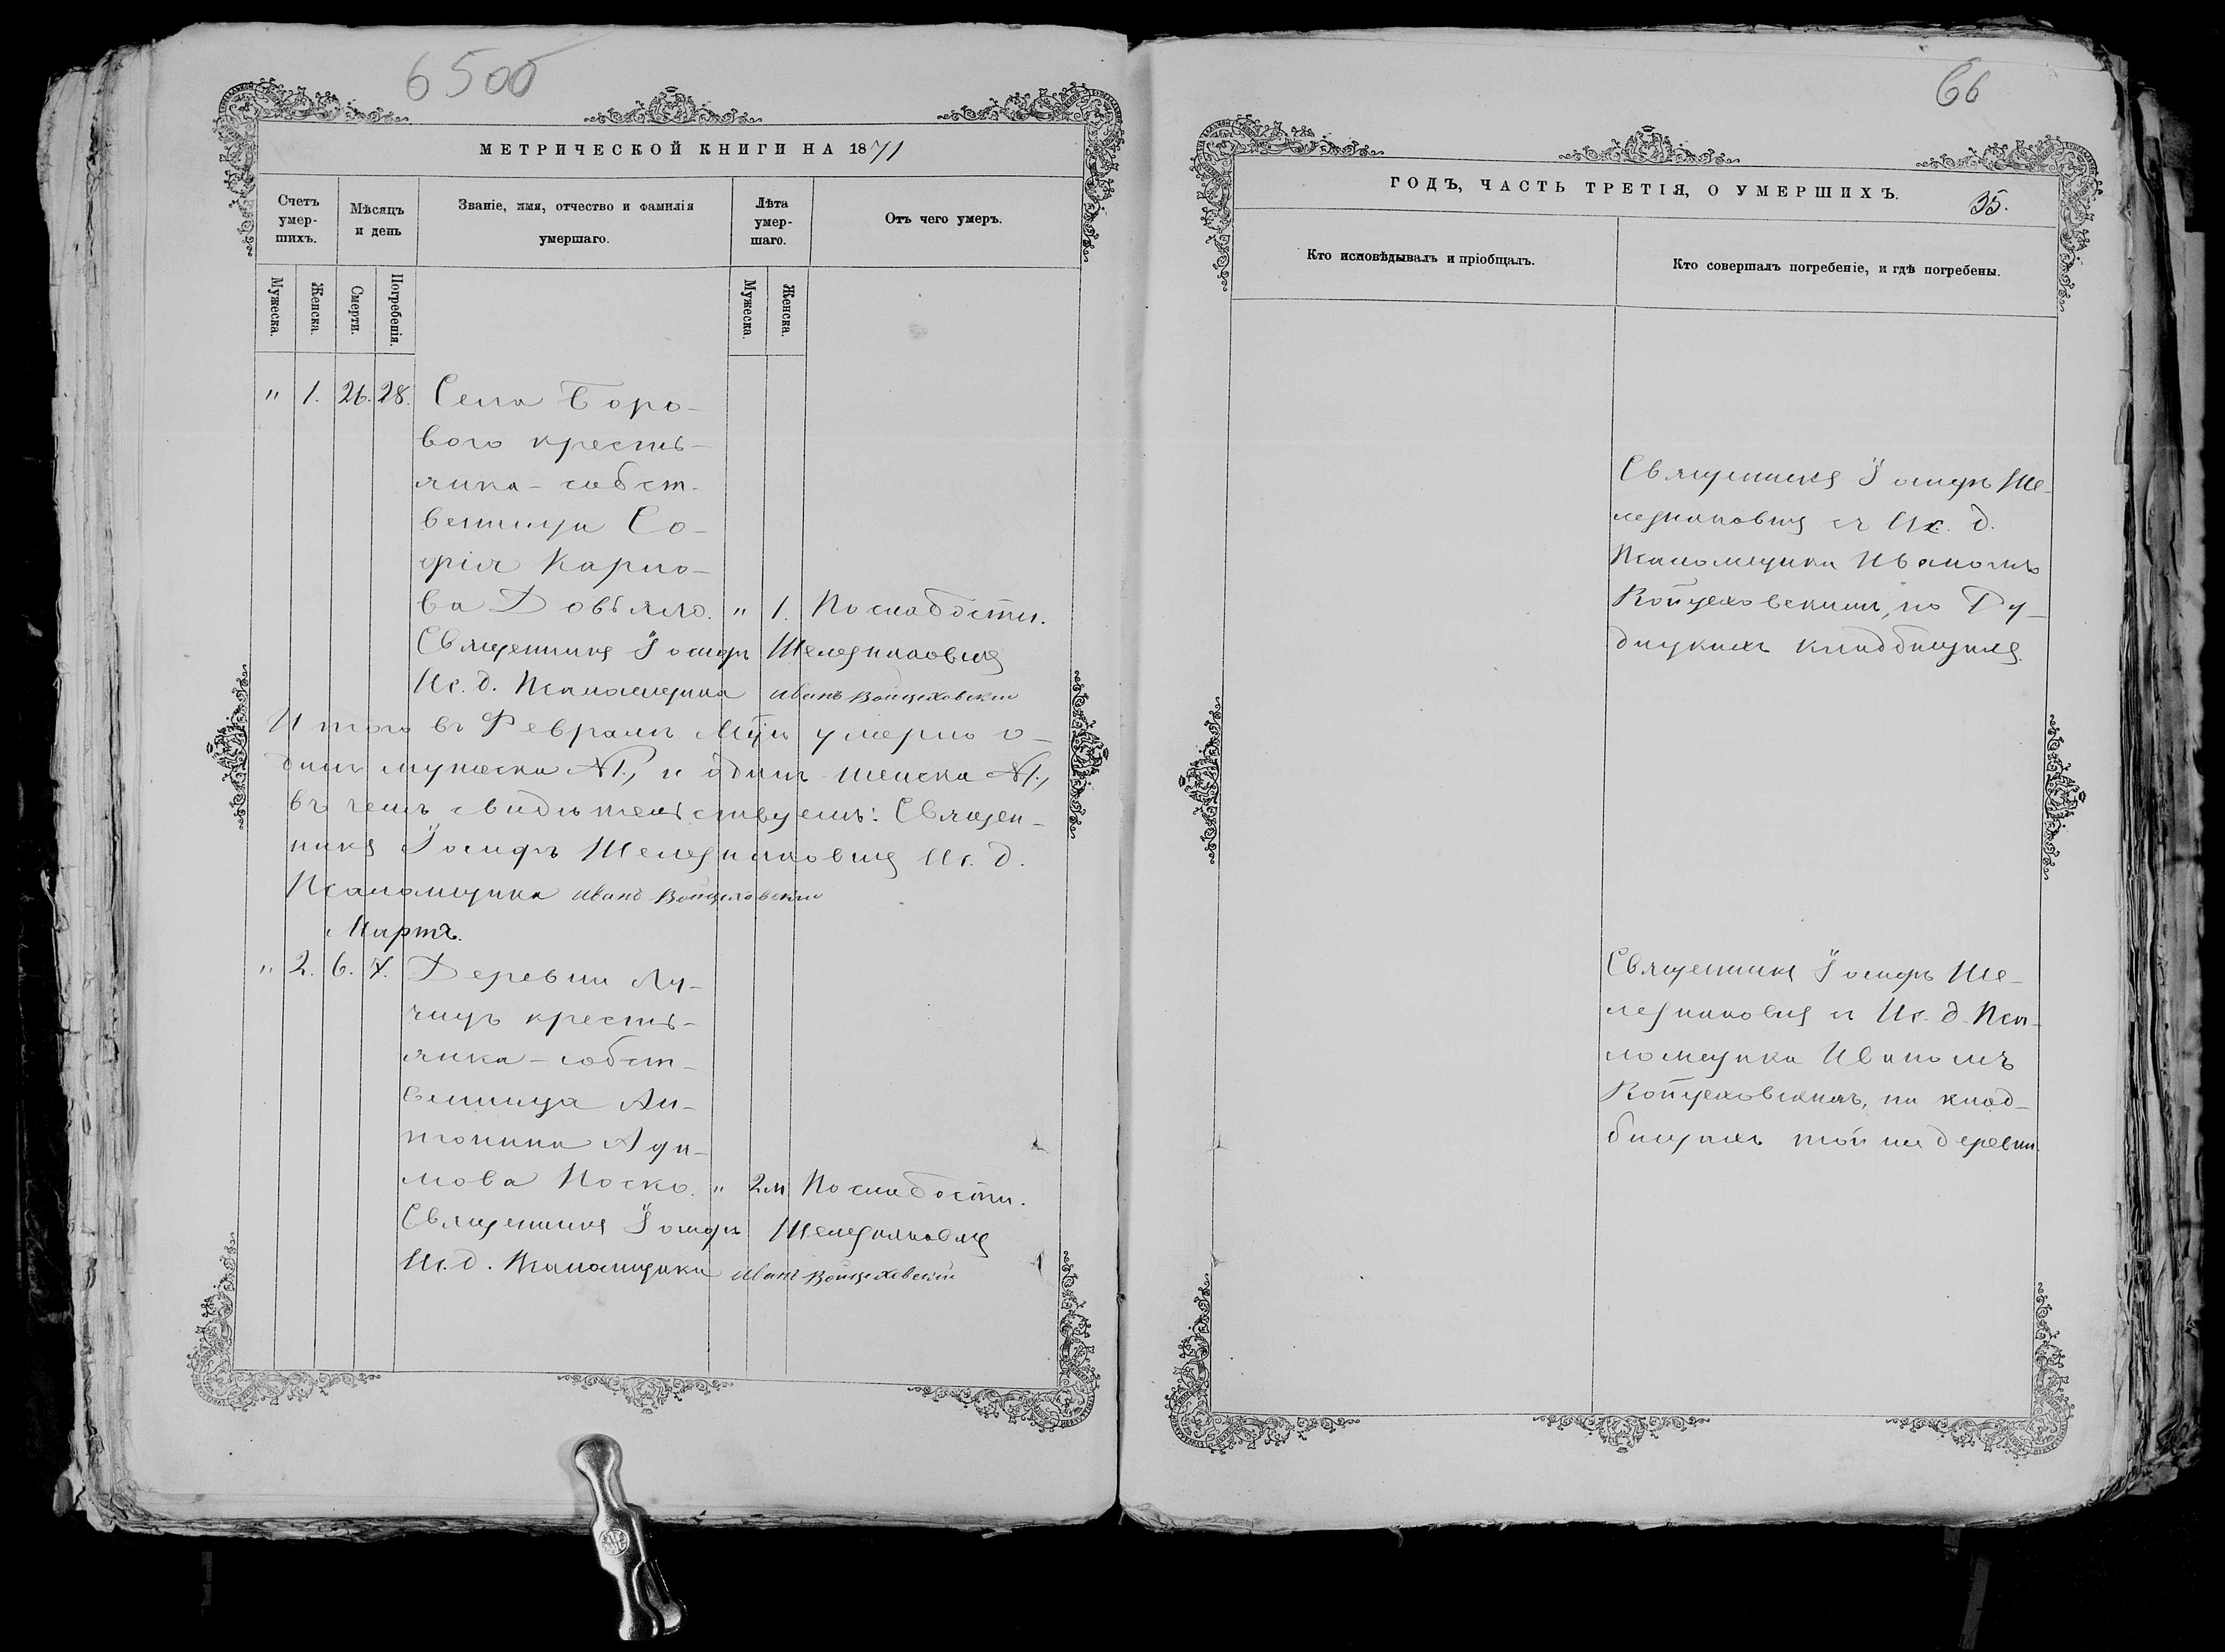 650б
МЕТРИЧЕСКОЙ КНИГИ НА 1871
Счетъ умер-шихъ.
Мѣсяцъ и день
Званіе, имя, отчество и фамилія умершаго.
Лѣта умер-шаго.
Отъ чего умеръ.
Мужеска.
Женска.
Смерти.
Погребенія.
Мужеска.
Женска.
" 1. 26. 28. Села Боро-
вого кресть-
янка-собст-
венница Со-
фія Карпо-
ва Довѣяло. " 1. По слабости.
Священникъ Іосифъ
Ис. д. Псаломщика Иванъ Войцеховскій
Итого въ Февралѣ мцѣ умерло о-
динъ мужеска №1, и одинъ женска №1,
въ чемъ свидѣтельствуемъ: Священ-
никъ Іосифъ Ис. д.
Псаломщика Иванъ Войцеховскій
Мартъ.
" 2. 6. 7. Деревни Лу-
чицъ кресть-
янка-собст-
венница Ан-
тонина Ада-
мова Носко. " 2 м По слабости.
Священникъ Іосифъ
Ис. д. Псаломщика Иванъ Войцеховскій
66
ГОДЪ, ЧАСТЬ ТРЕТІЯ, О УМЕРШИХЪ.
35.
Кто исповѣдывалъ и пріобщалъ.
Кто совершалъ погребеніе, и гдѣ погребены.
Священникъ Іосифъ
съ Ис. д.
Псаломщика Иваномъ
Войцеховскимъ, на
кладбищахъ.
Священникъ Іосифъ
съ Ис. д. Пса-
ломщика Иваномъ
Войцеховскимъ, на клад-
бищахъ той же деревни.